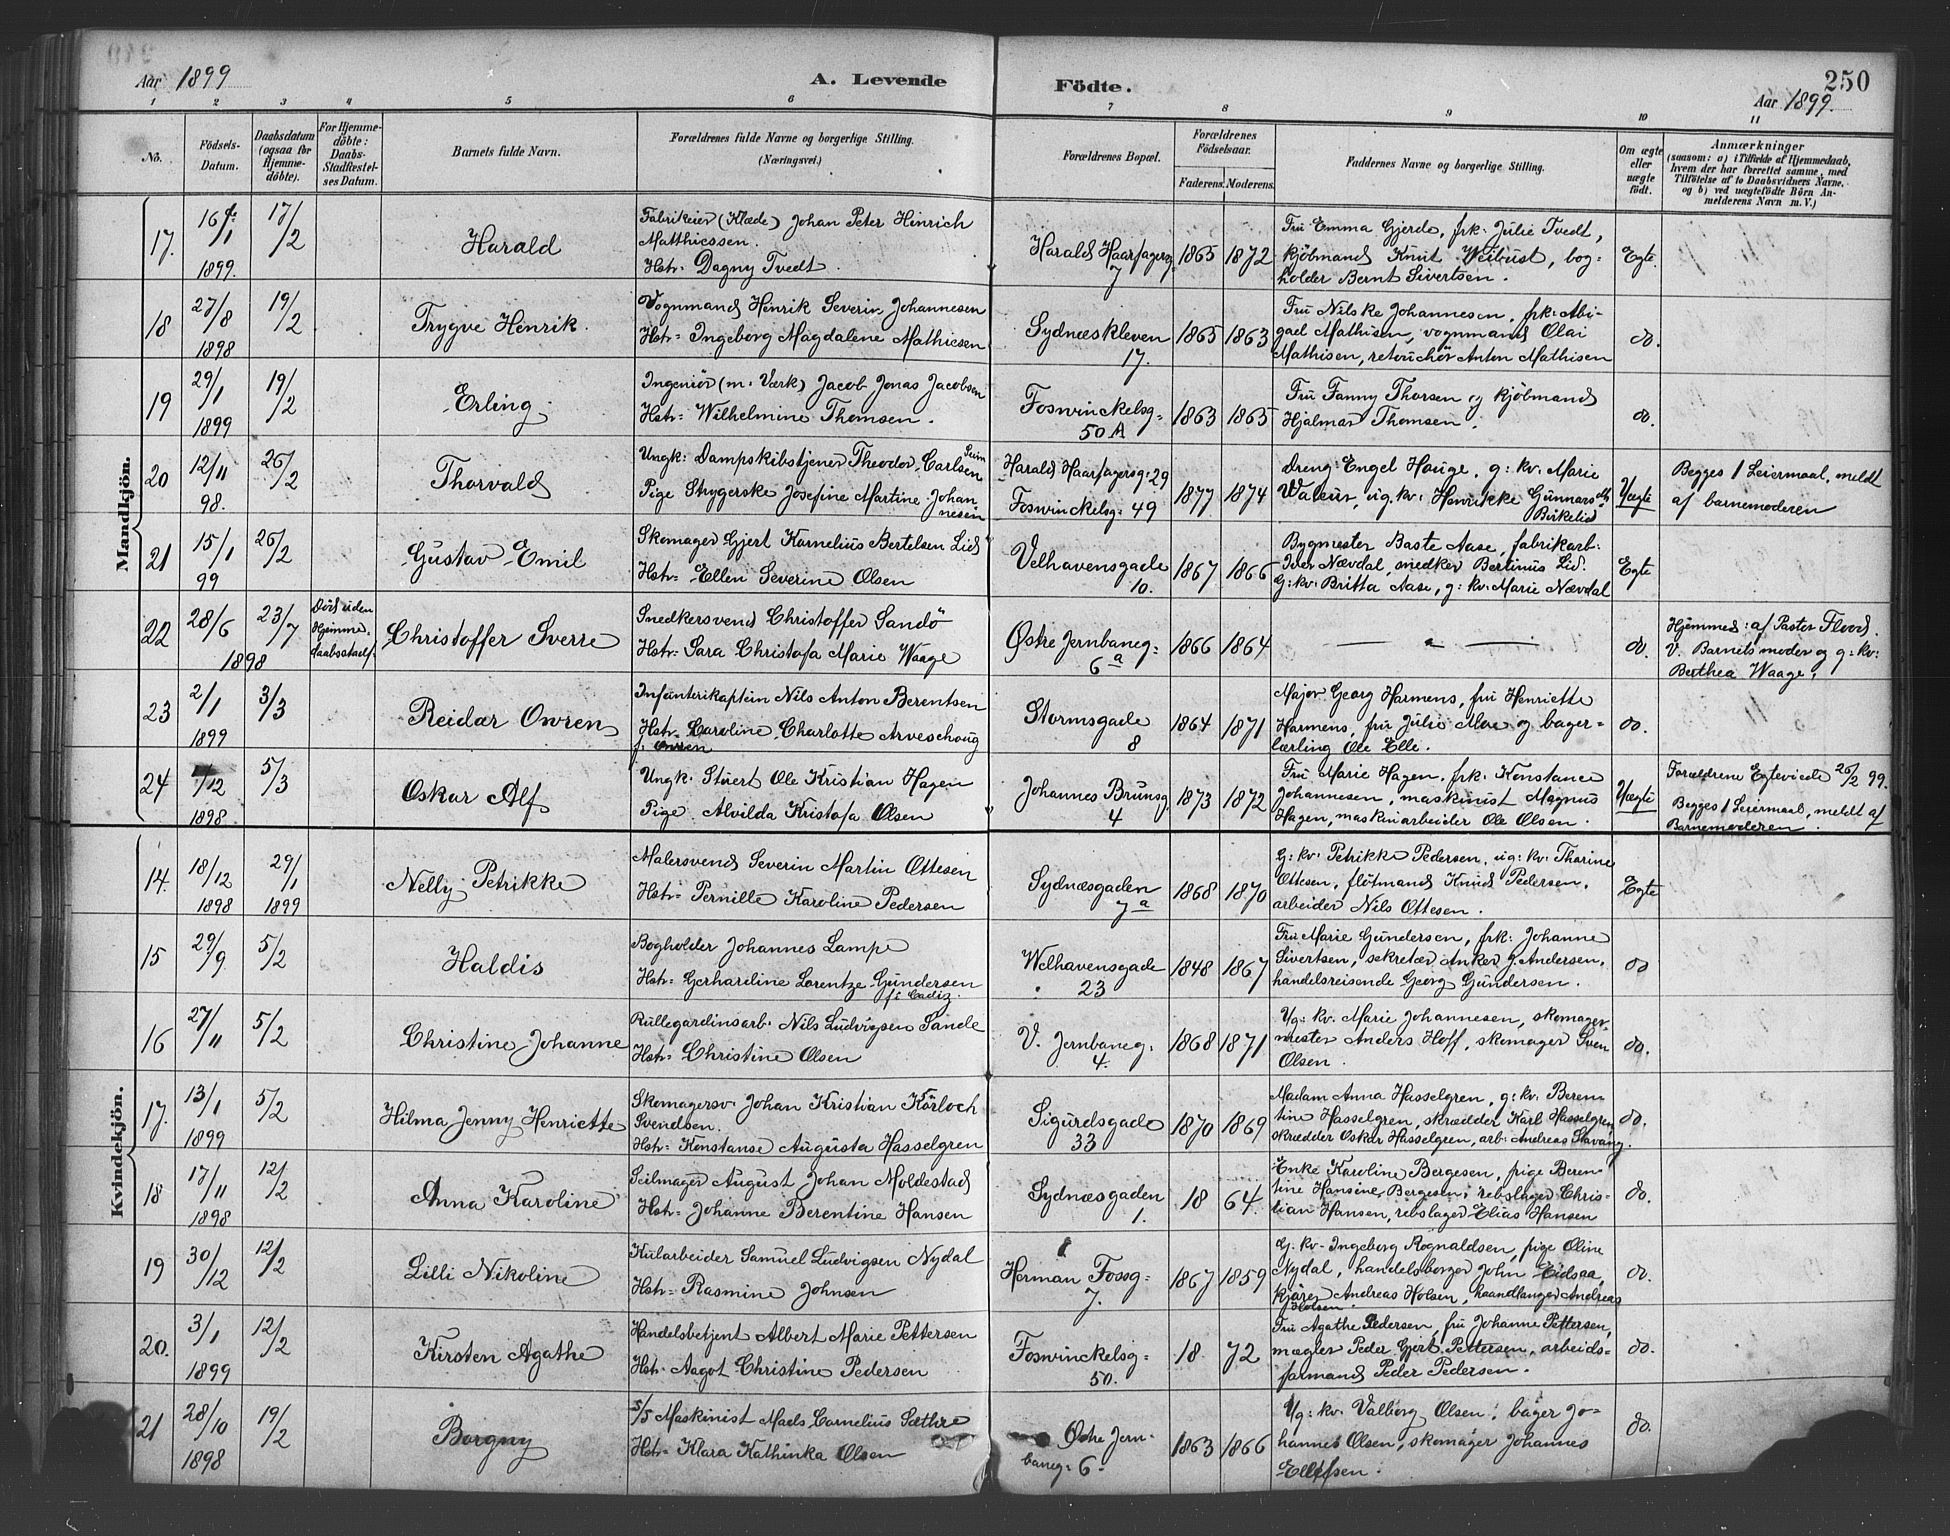 Aar 1899
A. Levende
Födte.
250
Aar 1899.
1 2 3 4 5 6 7 8 9 10 11
No.
Födsels-
Datum.
Daabsdatum
(ogsaa for
Hjemme-
döbte).
For Hjemme-
döbte:
Daabs-
Stadfæstel-
ses Datum.
Barnets fulde Navn.
Forældrenes fulde Navne og borgerlige Stilling.
(Næringsvei.)
Forældrenes Bopæl.
Forældrenes
Födselsaar.
Faderens. Moderens.
Faddernes Navne og borgerlige Stilling.
Om ægte
eller
uægte
födt.
Anmærkninger
(saasom: a) i Tilfælde af Hjemmedaab,
hvem der har forrettet samme, med
Tilföielse af to Daabsvidners Navne,
og b) ved uægtefödte Börn An-
melderens Navn m. V.)
Mandkjön.
17.
16/1
1899.
17/2
Harald
Fabrikeier (Klæde) Johan Peter Hinrich
Matthiessen.
Hstr. Dagny Tvedt.
Harald Haarfagersg.
7
1865 1872
Fru Emma Gjerde, frk. Julie Tvedt,
kjöbmand Knut Weibust, bog-
holder Bernt Sivertsen.
Egte.
18
27/8
1898
19/2
Trygve Henrik.
Vognmand Henrik Severin Johannesen
Hstr. Ingeborg Magdalene Mathiesen
Sydneskleven
17.
1865 1863
Fru Nilske Johannesen, frk. Abi-
gael Mathisen, vognmand Olai
Mathisen, retouchör Anton Mathisen
do.
19
29/1
1899
19/2
Erling
Ingeniör (m. Værk) Jacob Jonas Jacobsen
Hstr. Wilhelmine Thomsen.
Foswinckelsg.
50 A
1863 1865
Fru Fanny Thorsen og kjöbmand
Hjalmar Thomsen.
do.
20
12/11
98.
26/2
Thorvald
Ungk: Dampskibstjener Theodor Carlsen
Pige Strygerske Josefine Martine Johan
nesen
Harald Haarfagersg. 29
Foswinckelsg. 49
1877 1874
Dreng Engel Hauge, g. kv. Marie
Valeur, ug. kv. Henrikke Gunnarsdtr
Birkelid
Uægte
Begges 1 Leiermaal, meldt
af barnemoderen
21
15/1
99
26/2
Gustav Emil
Skomager Gjert Kornelius Bertelsen Lid
Hstr. Ellen Severine Olsen
Velhavensgade
10.
1867 1866
Bygmester Baste Aase, fabrikarb.
Iver Nævdal, snedker Bertinus Lid.
g. kv. Britta Aase, g. kv. Marie Nævdal
Egte
22
28/6
1898
23/7
Död uden
Hjemme-
daabsstadf.
Christoffer Sverre
Snedkersvend Christoffer Sandö
Hstr. Sara Christofa Marie Waage
Østre Jernbaneg.
6a
1866 1864
do.
Hjemmed: af Pastor Flood.
V. Barnets moder og g. kv:
Berthea Waage.
23
2/1
1899
3/3
Reidar Owren
Infanterikaptein Nils Anton Berentsen
Hstr. Caroline Charlotte Arveschoug
f. Owren
Stormsgade
8
1864 1871
Major Georg Harmens, fru Henriette
Harmens, fru Julie Moe og bager-
lærling Ole Elle.
do.
24
/12
1898
5/3
Oskar Alf
Ungk. Stuert Ole Kristian Hagen
Pige. Alvilda Kristofa Olsen
Johannes Brunsg.
4
1873 1872
Fru Marie Hagen, frk. Konstance
Johannesen, maskinist Magnus
Hagen, maskinarbeider Ole Olsen.
Uægte
Forældrene Egteviede 26/2 99.
Begges 1 Leiermaal, meldt af
Barnemoderen.
Kvindekjön.
14.
18/12
1898
29/1
1899
Nelly Petrikke
Malersvend Severin Martin Ottesen
Hstr. Pernille Karoline Pedersen
Sydnæsgaden
7a
1868 1870
G. kv. Petrikke Pedersen, ug. kv. Thorine
Ottesen, flötmand Knud Pedersen,
arbeider Nils Ottesen.
Egte
15
29/9
5/2
Haldis
Bogholder Johannes Lampe
Hstr. Gerhardine Lorentze Gundersen
f. Cadiz.
Welhavensgade
23
1848 1867
Fru Marie Gundersen, frk. Johanne
Sivertsen, sekretær Anker G. Andersen,
handelsreisende Georg Gundersen.
do
16
27/11
5/2
Christine Johanne
Rullegardinsarb. Nils Ludvigsen Sande
Hstr. Christine Olsen
V. Jernbaneg.
4.
1868 1871
Ug. kv. Marie Johannesen, skomager-
mester Anders Hoff, skomager Sven
Olsen.
do.
17.
13/1
1899
5/2
Hilma Jenny Henriette
Skomagersv. Johan Kristian Körloch
Svendsen.
Hstr. Konstanse Augusta Hasselgren
Sigurdsgade
33
1870 1869
Madam Anna Hasselgren, g. kv. Beren-
tine Hasselgren, skrædder Karl Hasselgren
skrædder Oskar Hasselgren, arb. Andreas Stavang.
do.
18
17/11
1898
12/2
Anna Karoline
Seilmager August Johan Moldestad
Hstr. Johanne Berentine Hansen
Sydnæsgaden
1.
18 64.
Enke Karoline Bergesen, pige Beren-
tine Hansine Bergesen, rebslager Chris-
tian Hansen, rebslager Elias Hansen
do.
19
30/12
12/2
Lilli Nikoline
Kularbeider Samuel Ludvigsen Nydal
Hstr. Rasmine Johnsen
Herman Fossg.
7.
1867 1859
G. kv. Ingeborg Rognaldsen, pige Oline
Nydal, handelsborger John Eidsaa,
kjörer Andreas Holsen, haandlanger Andreas
Holsen.
do.
20.
3/1
1899
12/2
Kirsten Agathe
Handelsbetjent Albert Marie Pettersen
Hstr. Aagot Christine Pedersen
Foswinckelsg.
50.
18. 72
Fru Agathe Pedersen, fru Johanne Pettersen,
mægler Peder Gjert Pettersen, arbeids-
formand Peder Pedersen.
do.
21
28/10
1898
19/2
Borgny
5/5 Maskinist Mads Cornelius Sæthre
Hstr. Klara Kathinka Olsen
Østre Jern-
baneg. 6.
1863 1866
Ug. kv. Valborg Olsen, bager Jo-
hannes Olsen, skomager Johannes
Ellefsen.
do.